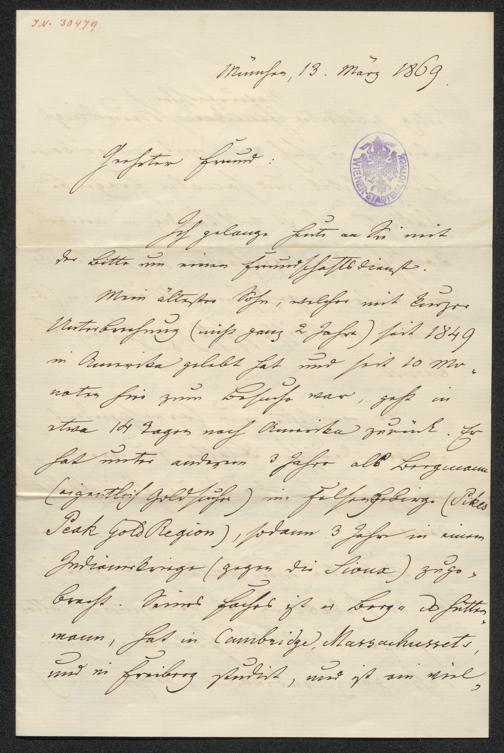 I.N. 30479
München, 13. März 1869.
WIENER STADTBIBLIOTHEK
Geehrter Freund:
Ich gelange heute an Sie mit
der Bitte um einen Freundschaftsdienst.
Mein ältester Sohn, welcher mit kurzer
Unterbrechung (nicht ganz 2 Jahre) seit 1849
in Amerika gelebt hat und seit 10 Mo-
naten hier zum Besuche war, geht in
etwa 14 Tagen nach Amerika zurück. Er
hat unter anderem 3 Jahre als Bergmann
(eigentlich Goldsucher) im Felsengebirge (Pikes
Peak Gold Region), sodann 3 Jahre in einem
Indianerkriege (gegen die Sioux) zuge-
bracht. Seines Faches ist er Berg- & Hütten-
mann, hat in Cambridge, Massachussets,
und in Freiberg studirt, und ist ein viel-